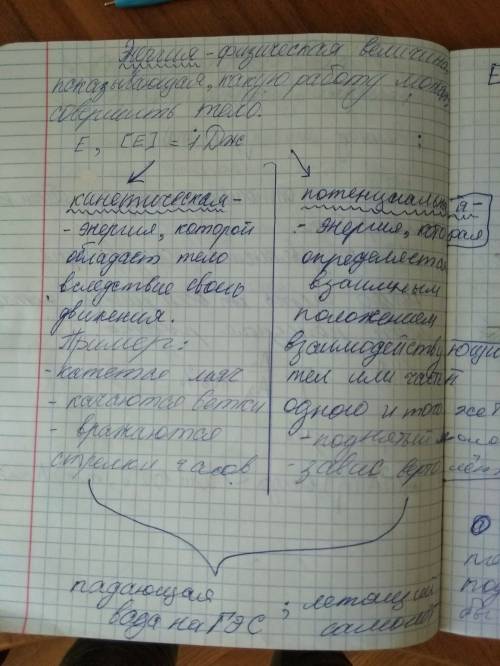 Энергия - физическая величина,
показывающая, какую работу может
совершить тело.
E, [E] = 1 Дж
кинетическая -
- энергия, которой
обладает тело
вследствие своего
движения.
Пример:
- катется мяч
- качаются ветки
- вражаются
стрелки часов
потенциальная -
- энергия, которая
определяется
взаимным
положением
взаимодействующих
тел или частей
одного и того же
- поднятый
- завис
падающая
вода на ГЭС
; летящий
самолёт